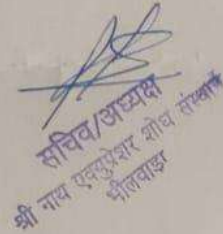 सचिव/अध्यक्ष
श्री नाथ एक्युप्रेशर शोध संस्थान
भीलवाड़ा